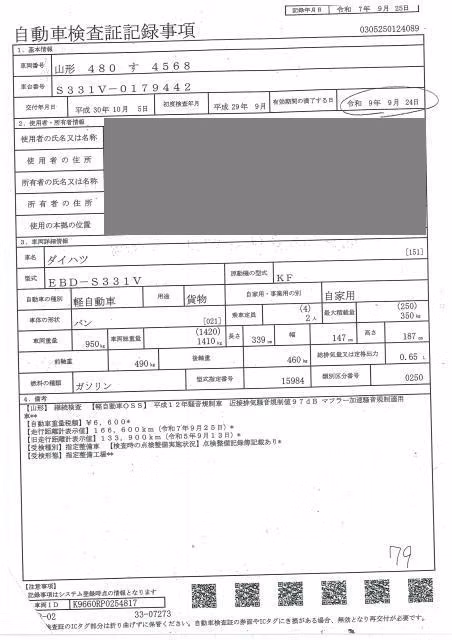 記録年月日 令和 7年 9月 25日
自動車検査証記録事項
0305250124089
1. 基本情報
車両番号 山形 480 す 4568
車台番号 S331V-0179442
交付年月日 平成 30年 10月 5日 初度検査年月 平成 29年 9月 有効期間の満了する日 令和 9年 9月 24日
2. 使用者・所有者情報
使用者の氏名又は名称
使用者の住所
所有者の氏名又は名称
所有者の住所
使用の本拠の位置
3. 車両詳細情報
車名 ダイハツ [151]
型式 EBD-S331V 原動機の型式 KF
自動車の種別 軽自動車 用途 貨物 自家用・事業用の別 自家用
車体の形状 バン [021] 乗車定員 (4) 2人 最大積載量 (250) 350kg
車両重量 950kg 車両総重量 (1420) 1410kg 長さ 339cm 幅 147cm 高さ 187cm
前軸重 490kg 後軸重 460kg 総排気量又は定格出力 0.65 L
燃料の種類 ガソリン 型式指定番号 15984 類別区分番号 0250
4. 備考
【山形】 継続検査 【軽自動車OSS】 平成12年騒音規制車 近接排気騒音規制値97dB マフラー加速騒音規制適用
車**
【自動車重量税額】¥6,600*
【走行距離計表示値】166,600km (令和7年9月25日)*
【旧走行距離計表示値】133,900km (令和5年9月13日)*
【受検種別】指定整備車 【検査時の点検整備実施状況】点検整備記録簿記載あり*
【受検形態】指定整備工場**
79
【注意事項】
記録事項はシステム登録時点の情報となります
車両ID K9660RP0254817
-02 33-07273
検査証のICタグ部分は折り曲げずに保管ください。自動車検査証の券面やICタグにき損がある場合、無効となり再交付が必要です。